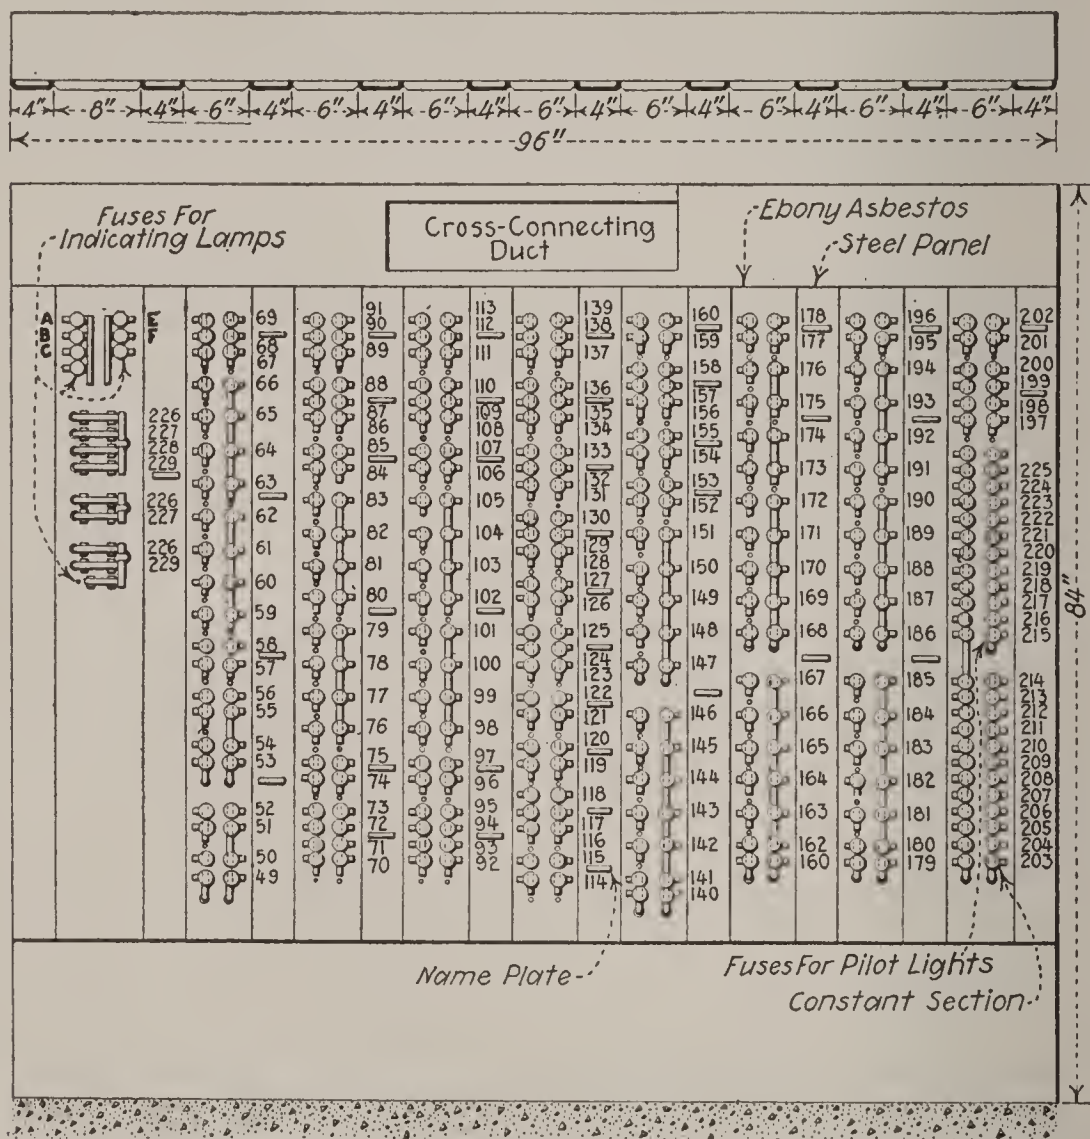 4" 8" 4" 6" 4" 6" 4" 6" 4" 6" 4" 6" 4" 6" 4" 6" 4" 6" 4"
96"
Fuses For
Indicating Lamps
Cross-Connecting
Duct
Ebony Asbestos
Steel Panel
A
B
C
226
227
228
229
226
227
226
229
69
68
67
66
65
64
63
62
61
60
59
58
57
56
55
54
53
52
51
50
49
91
90
89
88
87
86
85
84
83
82
81
80
79
78
77
76
75
74
73
72
71
70
113
112
111
110
109
108
107
106
105
104
103
102
101
100
99
98
97
96
95
94
93
92
139
138
137
136
135
134
133
132
131
130
129
128
127
126
125
124
123
122
121
120
119
118
117
116
115
114
160
159
158
157
156
155
154
153
152
151
150
149
148
147
146
145
144
143
142
141
140
178
177
176
175
174
173
172
171
170
169
168
167
166
165
164
163
162
160
196
195
194
193
192
191
190
189
188
187
186
185
184
183
182
181
180
179
202
201
200
199
198
197
225
224
223
222
221
220
219
218
217
216
215
214
213
212
211
210
209
208
207
206
205
204
203
84"
Name Plate
Fuses For Pilot Lights
Constant Section